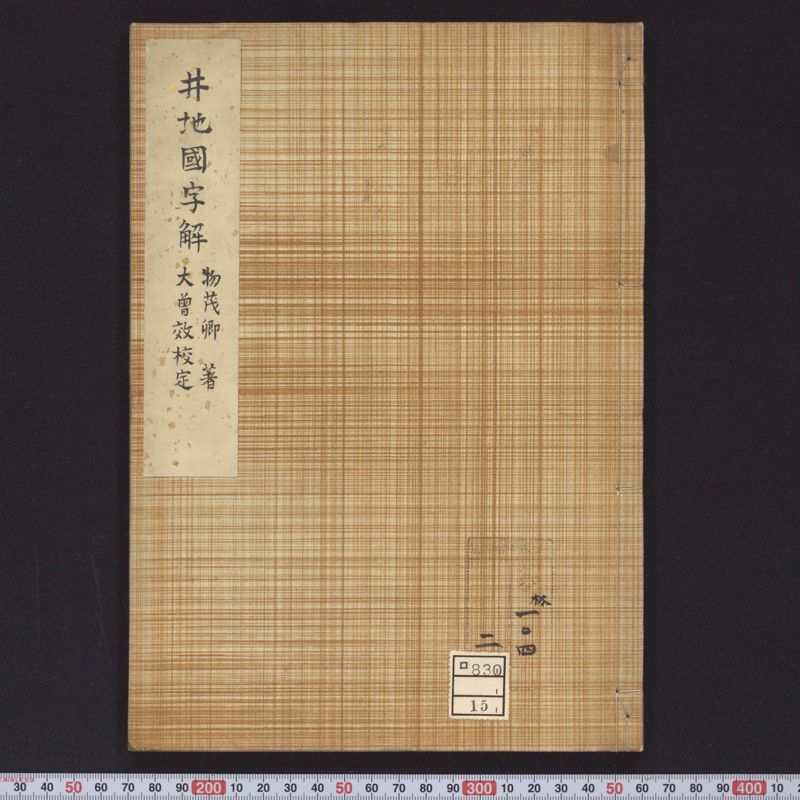 井地國字解
物茂卿 著
大曾效校定
林
一〇四
二
ロ830
15
30 40 50 60 70 80 90 200 10 20 30 40 50 60 70 80 90 300 10 20 30 40 50 60 70 80 90 400 10